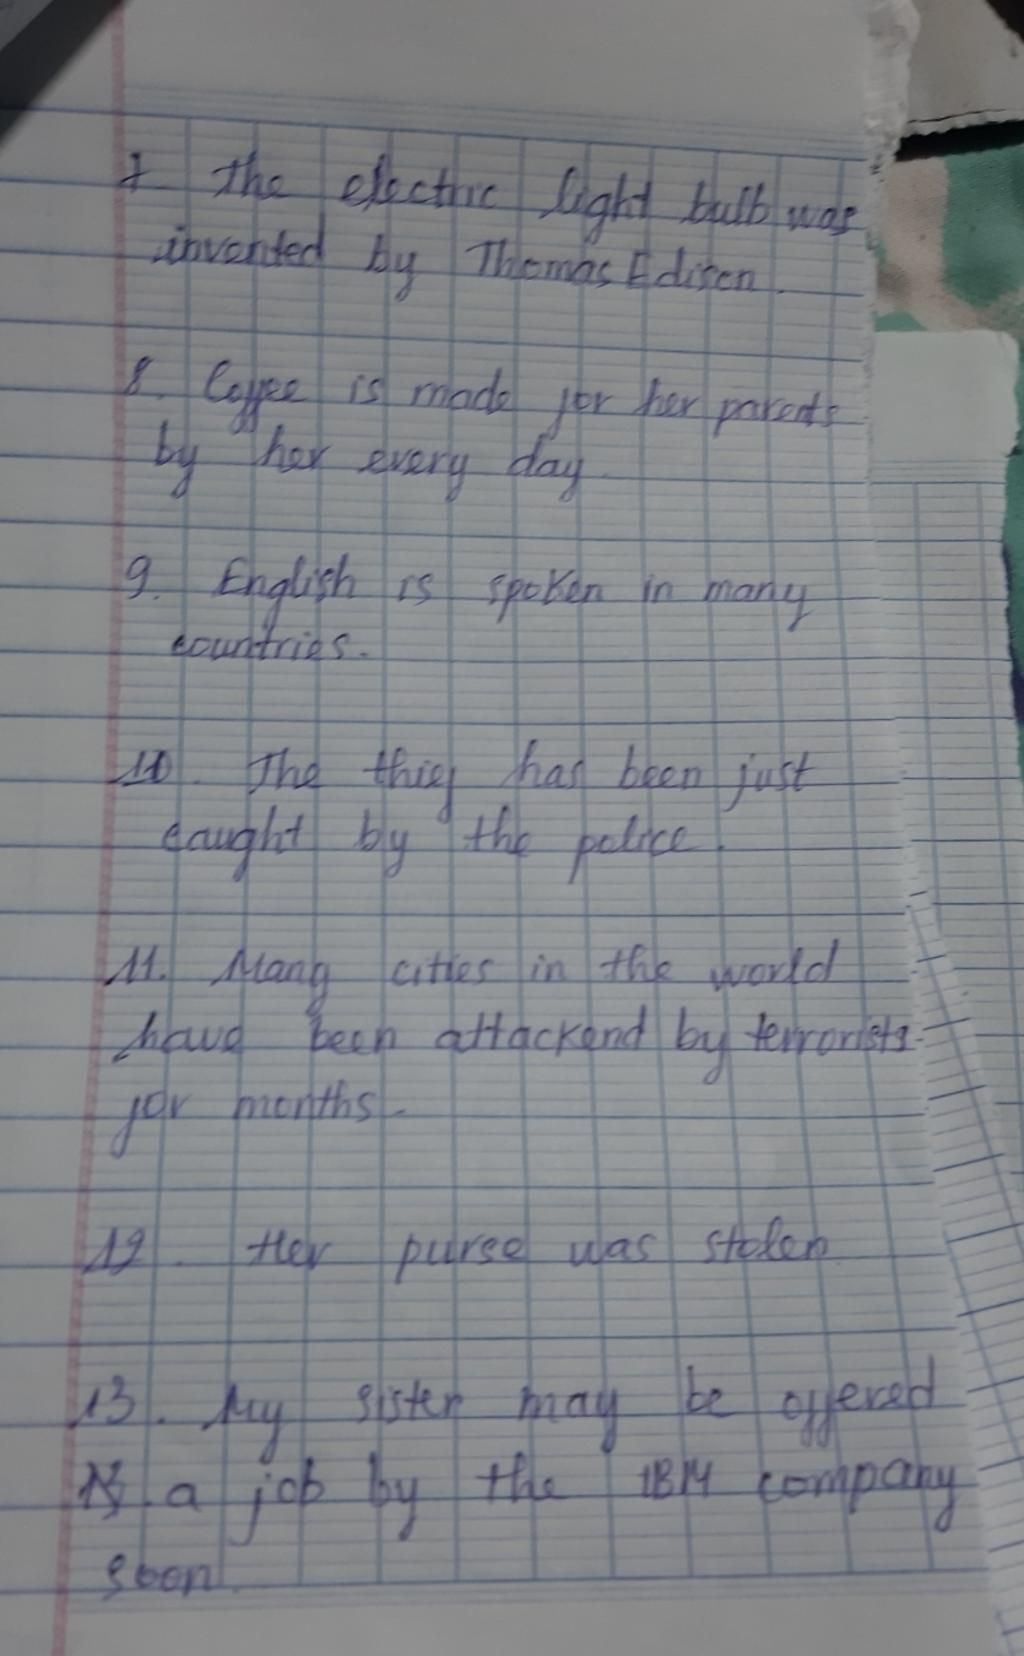 7 The electric light bulb was
invented by Thomas Edison.
8. Coffee is made for her parents
by her every day
9. English is spoken in many
countries.
10. The thief has been just
caught by the police.
11. Many cities in the world
have been attackend by terrorists
for months.
12. Her purse was stolen
13. My sister may be offered
a job by the IBM company
soon.